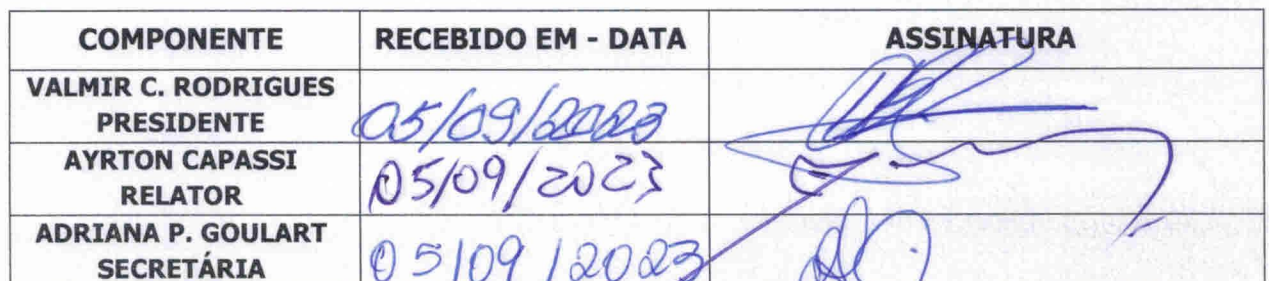 COMPONENTE RECEBIDO EM - DATA ASSINATURA
VALMIR C. RODRIGUES
PRESIDENTE 05/09/2023
AYRTON CAPASSI
RELATOR 05/09/2023
ADRIANA P. GOULART
SECRETÁRIA 05/09/2023